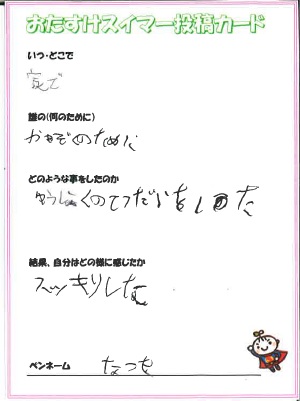 おたすけスイマー投稿カード
いつ・どこで
家で
誰の(何のために)
かぞくのために
どのような事をしたのか
ゆうしょくのてつだいをした
結果、自分はどの様に感じたか
スッキリした
ペンネーム なつを